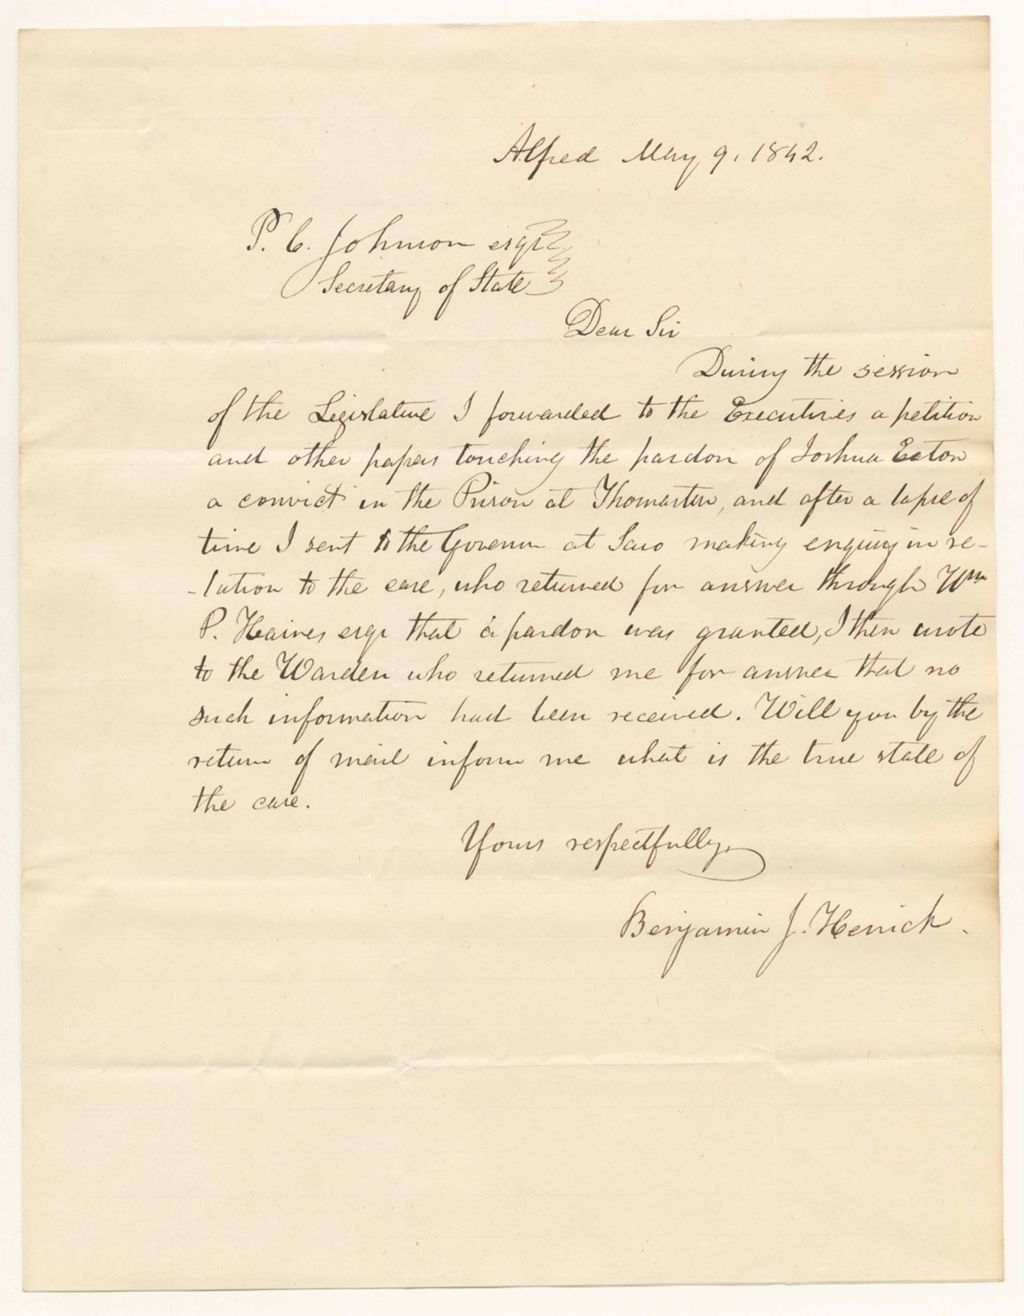 Alfred May 9, 1842.
P. C. Johnson esqr
Secretary of State
Dear Sir
During the session
of the Legislative I forwarded to the Executives a petition
and other papers touching the pardon of Joshua Eaton
a convict in the Prison at Thomaston, and after a lapse of
time I sent to the Governor at Saco making enquiry in re-
-lation to the case, who returned for answer through Wm
P. Haines esqr that a pardon was granted, I then wrote
to the Warden who returned me for answer that no
such information had been received. Will you by the
return of mail inform me what is the true state of
the case.
Yours respectfully,
Benjamin J. Herrick.